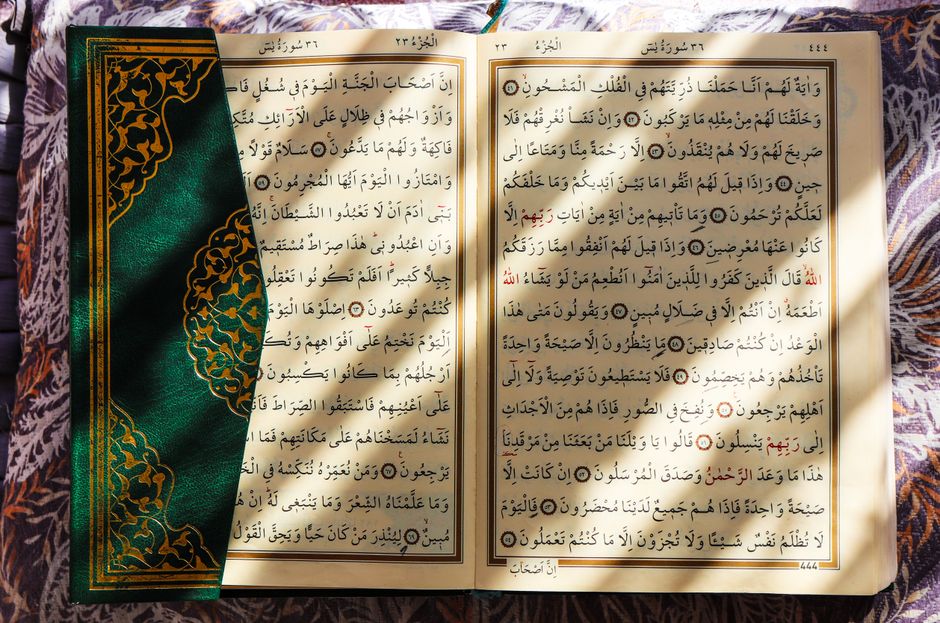 ٤٤٤ ٣٦ سُورَةُ يٰسٓ اَلْجُزْءُ ٢٣
وَاٰيَةٌ لَهُمْ اَنَّا حَمَلْنَا ذُرِّيَّتَهُمْ فِي الْفُلْكِ الْمَشْحُونِۙ ﴿٤١﴾
وَخَلَقْنَا لَهُمْ مِنْ مِثْلِهٖ مَا يَرْكَبُونَ ﴿٤٢﴾ وَاِنْ نَشَأْ نُغْرِقْهُمْ فَلَا
صَرٖيخَ لَهُمْ وَلَا هُمْ يُنْقَذُونَۙ ﴿٤٣﴾ اِلَّا رَحْمَةً مِنَّا وَمَتَاعًا اِلٰى
حٖينٍ ﴿٤٤﴾ وَاِذَا قٖيلَ لَهُمُ اتَّقُوا مَا بَيْنَ اَيْدٖيكُمْ وَمَا خَلْفَكُمْ
لَعَلَّكُمْ تُرْحَمُونَ ﴿٤٥﴾ وَمَا تَأْتٖيهِمْ مِنْ اٰيَةٍ مِنْ اٰيَاتِ رَبِّهِمْ اِلَّا
كَانُوا عَنْهَا مُعْرِضٖينَ ﴿٤٦﴾ وَاِذَا قٖيلَ لَهُمْ اَنْفِقُوا مِمَّا رَزَقَكُمُ
اللّٰهُ قَالَ الَّذٖينَ كَفَرُوا لِلَّذٖينَ اٰمَنُٓوا اَنُطْعِمُ مَنْ لَوْ يَشَٓاءُ اللّٰهُ
اَطْعَمَهُۗ اِنْ اَنْتُمْ اِلَّا فٖي ضَلَالٍ مُبٖينٍ ﴿٤٧﴾ وَيَقُولُونَ مَتٰى هٰذَا
الْوَعْدُ اِنْ كُنْتُمْ صَادِقٖينَ ﴿٤٨﴾ مَا يَنْظُرُونَ اِلَّا صَيْحَةً وَاحِدَةً
تَأْخُذُهُمْ وَهُمْ يَخِصِّمُونَ ﴿٤٩﴾ فَلَا يَسْتَطٖيعُونَ تَوْصِيَةً وَلَٓا اِلٰٓى
اَهْلِهِمْ يَرْجِعُونَ ﴿٥٠﴾ وَنُفِخَ فِي الصُّورِ فَاِذَا هُمْ مِنَ الْاَجْدَاثِ
اِلٰى رَبِّهِمْ يَنْسِلُونَ ﴿٥١﴾ قَالُوا يَا وَيْلَنَا مَنْ بَعَثَنَا مِنْ مَرْقَدِنَاۢ
هٰذَا مَا وَعَدَ الرَّحْمٰنُ وَصَدَقَ الْمُرْسَلُونَ ﴿٥٢﴾ اِنْ كَانَتْ اِلَّا
صَيْحَةً وَاحِدَةً فَاِذَا هُمْ جَمٖيعٌ لَدَيْنَا مُحْضَرُونَ ﴿٥٣﴾ فَالْيَوْمَ
لَا تُظْلَمُ نَفْسٌ شَيْـًٔا وَلَا تُجْزَوْنَ اِلَّا مَا كُنْتُمْ تَعْمَلُونَ ﴿٥٤﴾
444 اِنَّ اَصْحَابَ
٣٦ سُورَةُ يٰسٓ اَلْجُزْءُ ٢٣
اِنَّ اَصْحَابَ الْجَنَّةِ الْيَوْمَ فٖي شُغُلٍ
وَاَزْوَاجُهُمْ فٖي ظِلَالٍ عَلَى الْاَرَٓائِكِ
فَاكِهَةٌ وَلَهُمْ مَا يَدَّعُونَۚ ﴿٥٧﴾ سَلَامٌ قَوْلًا
وَامْتَازُوا الْيَوْمَ اَيُّهَا الْمُجْرِمُونَ ﴿٥٩﴾
بَنٖٓي اٰدَمَ اَنْ لَا تَعْبُدُوا الشَّيْطَانَۚ اِنَّهُ
وَاَنِ اعْبُدُونٖيۜ هٰذَا صِرَاطٌ مُسْتَقٖيمٌ
جِبِلًّا كَثٖيرًاۜ اَفَلَمْ تَكُونُوا تَعْقِلُو
كُنْتُمْ تُوعَدُونَ ﴿٦٣﴾ اِصْلَوْهَا الْيَوْمَ
اَلْيَوْمَ نَخْتِمُ عَلٰٓى اَفْوَاهِهِمْ وَتُكَ
اَرْجُلُهُمْ بِمَا كَانُوا يَكْسِبُونَ
عَلٰٓى اَعْيُنِهِمْ فَاسْتَبَقُوا الصِّرَاطَ فَاَنّٰ
نَشَٓاءُ لَمَسَخْنَاهُمْ عَلٰى مَكَانَتِهِمْ فَمَا
يَرْجِعُونَ ﴿٦٧﴾ وَمَنْ نُعَمِّرْهُ نُنَكِّسْهُ فِي الْخَ
وَمَا عَلَّمْنَاهُ الشِّعْرَ وَمَا يَنْبَغٖي لَهُۜ اِنْ هُ
مُبٖينٌۙ ﴿٦٩﴾ لِيُنْذِرَ مَنْ كَانَ حَيًّا وَيَحِقَّ الْقَوْلُ